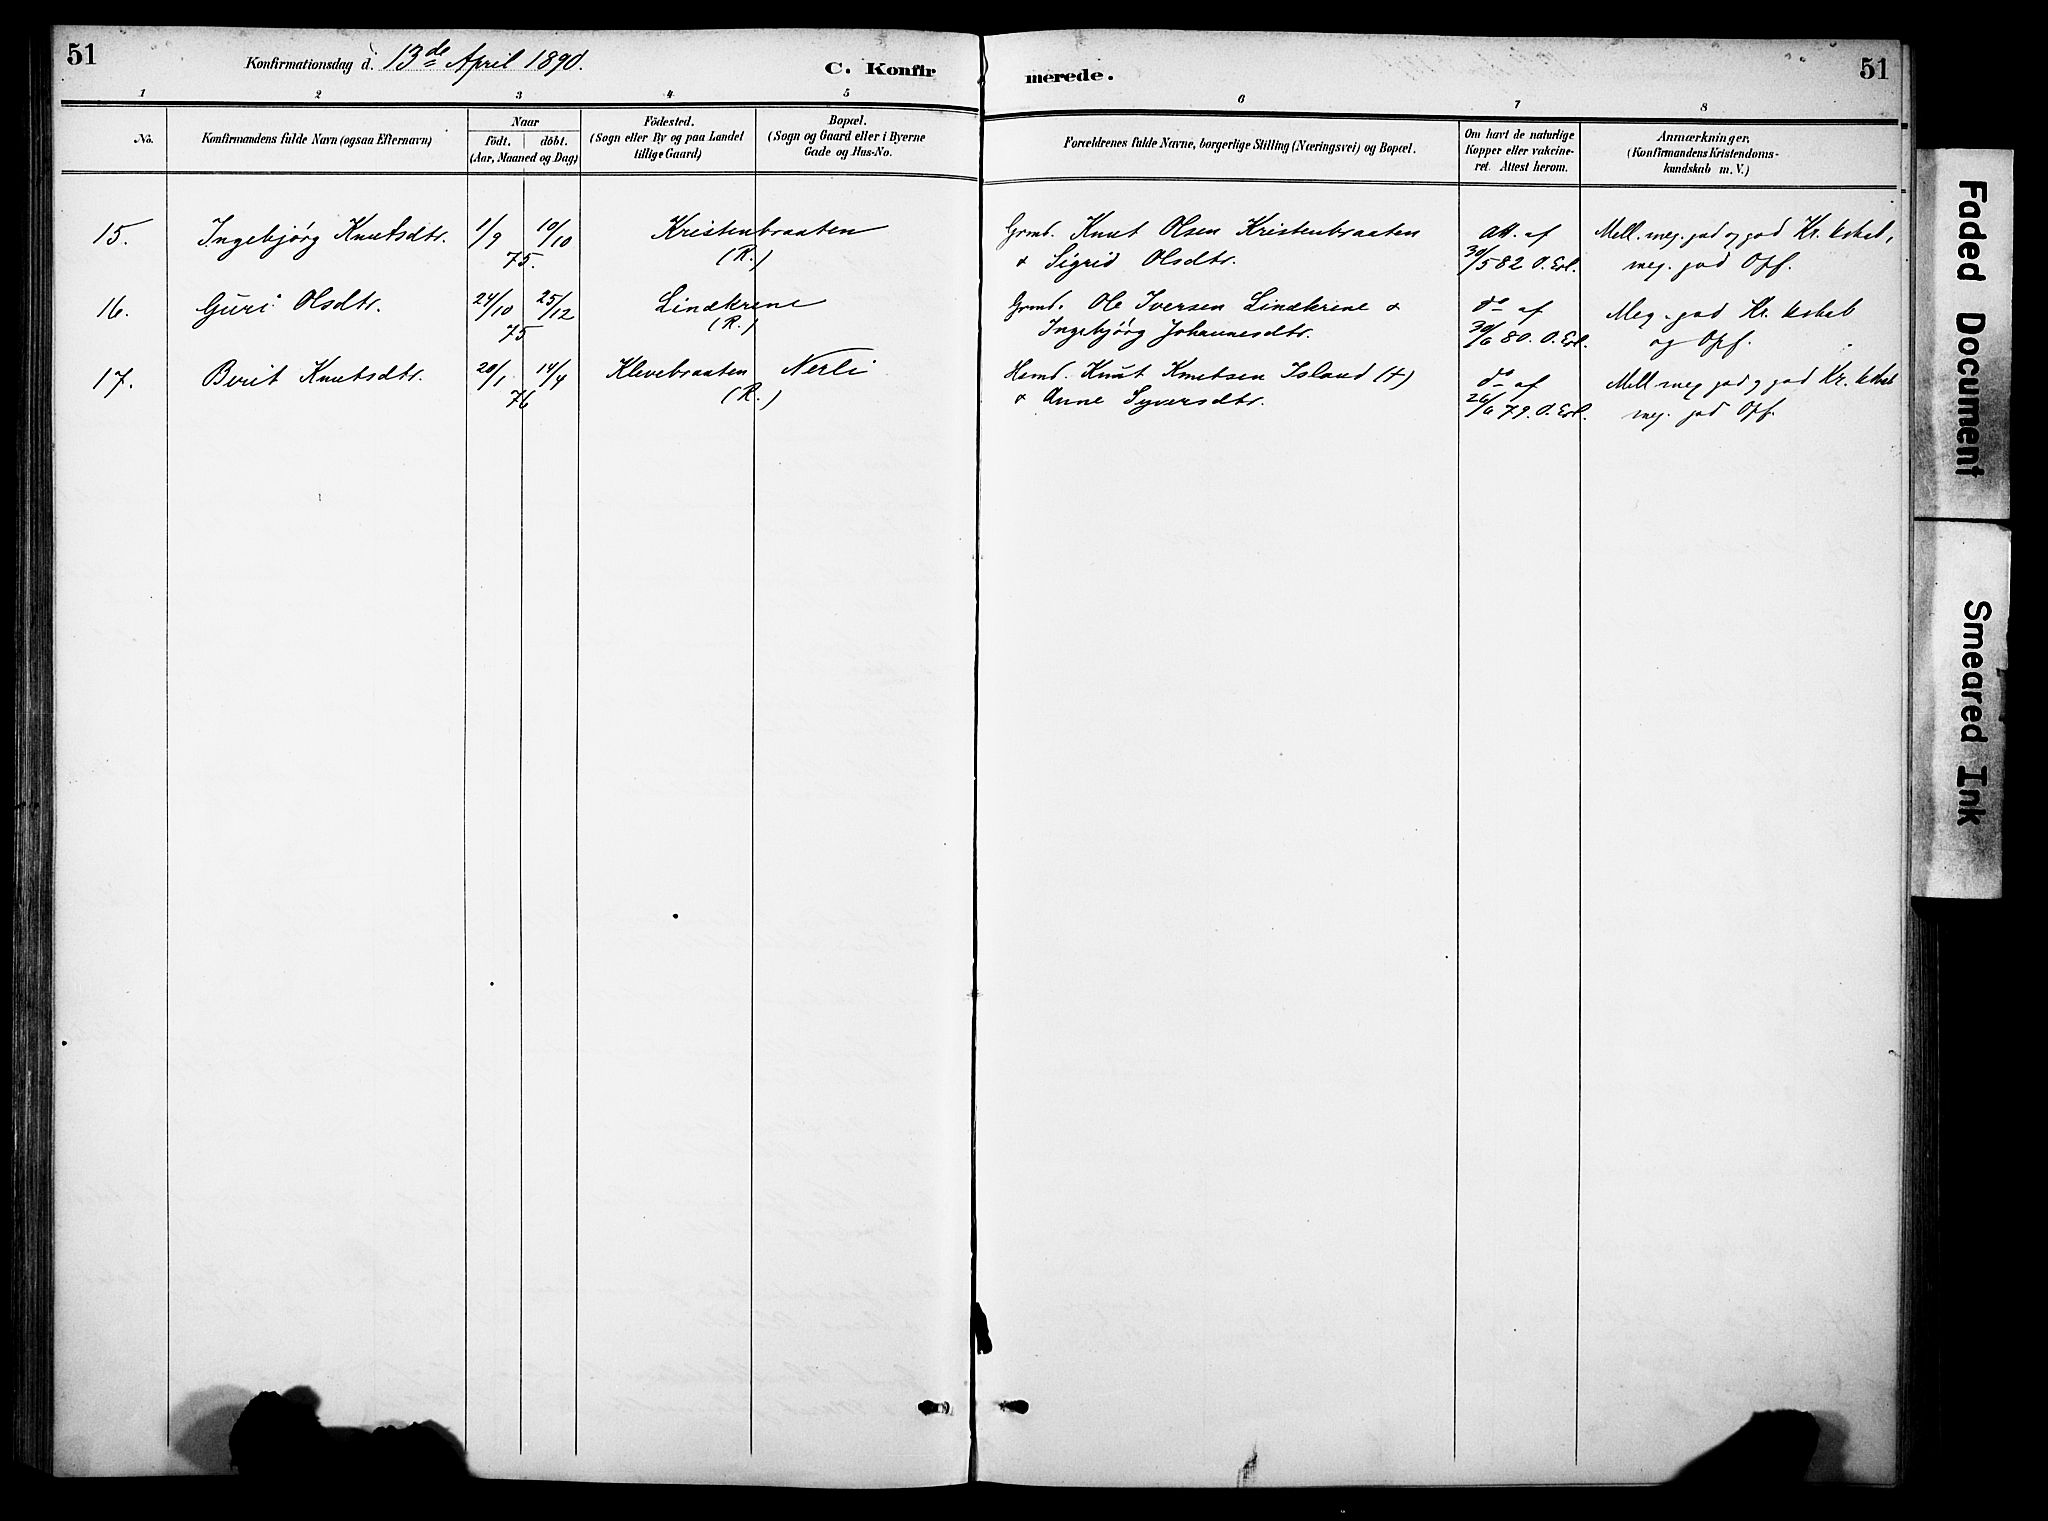 51
Konfirmationsdag d. 13de April 1890.
C. Konfir
merede.
51
1 2 3 4 5 6 7 8
No.
Konfirmandens fulde Navn (ogsaa Efternavn)
Naar
födt. döbt.
(Aar, Maaned og Dag)
Födested.
(Sogn eller By og paa Landet
tillige Gaard)
Bopæl.
(Sogn og Gaard eller i Byerne
Gade og Hus-No.
Forældrenes fulde Navne, borgerlige Stilling (Næringsvei) og Bopæl.
Om havt de naturlige
Kopper eller vakcine-
ret. Attest herom.
Anmærkninger,
(Konfirmandens Kristendoms-
kundskab m. V.)
15. Ingebjörg Knutsdtr. 1/9 10/10 Kristenbraaten Grmd. Knut Olsen Kristenbraaten Att. af Mell. meg. god og god Kr. kskab,
75. (R.) & Sigrid Olsdtr. 30/5 82 O. Erl. meg. god Opf.
16. Guri Olsdtr. 24/10 25/12 Lindekrene Grmd. Ole Iversen Lindekrene & do af Meg. god Kr. kskab
75 (R.) Ingebjörg Johannesdtr. 30/6 80. O. Erl. og Opf.
17. Berit Knutsdtr. 20/1 14/4 Klevebraaten Nerli Hsmd. Knut Knutsen Island (+) do af Mell. meg god og god Kr. kskab
76 (R.) & Anne Syversdtr. 26/6 79. O. Erl. meg. god Opf.
Faded Document
Smeared Ink